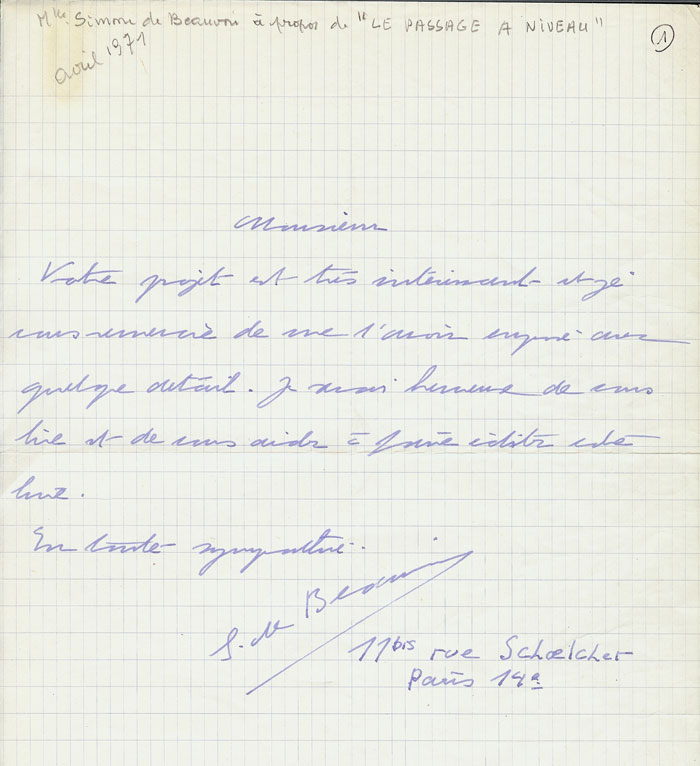 Mlle. Simone de Beauvoir à propos de "LE PASSAGE A NIVEAU"
avril 1971
1
Monsieur
Votre projet est très intéressant et je
vous remercie de me l'avoir exposé avec
quelque détail. Je serai heureuse de vous
lire et de vous aider à faire éditer votre
livre.
En toute sympathie.
S. de Beauvoir
11bis rue Schœlcher
Paris 14e